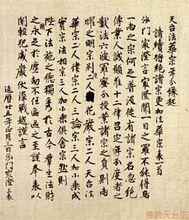 天台法華宗年分縁起
請續將絶諸宗更加法華宗表一首
沙門最澄言最澄聞一目之羅不能得鳥
一兩之宗何足普汲徒有諸宗名忽絶
傳業人誠願准十二律呂定年分度者之
數法六波羅蜜分授業諸宗之員則兩
曜之明宗別度二人華嚴宗二人天台法
華宗二人律宗二人三論宗三人加小乘成
實宗法相宗三人加小乘俱舍宗然則
陛下法施之德獨秀於古今群生法財
之用永足於塵劫不任區區之至謹奉表以
聞輕犯威嚴伏深戰越謹言
延曆廿五年正月三日沙門最澄上表